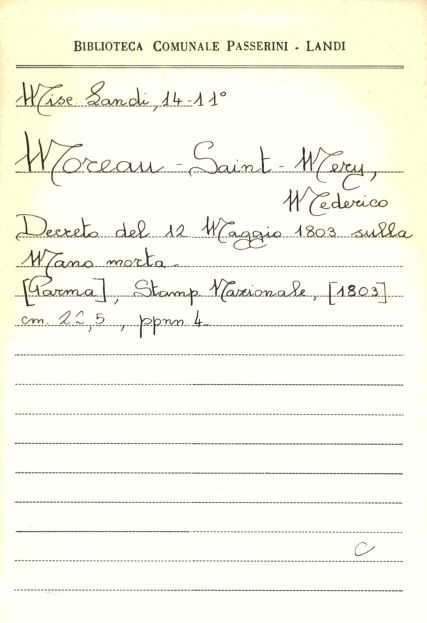 BIBLIOTECA COMUNALE PASSERINI - LANDI
Misc Landi, 14-11°
Moreau - Saint - Mery,
Mederico
Decreto del 12 Maggio 1803 sulla
Mano morta.
[Parma], Stamp Nazionale, [1803]
cm. 22,5, ppnn 4.
C